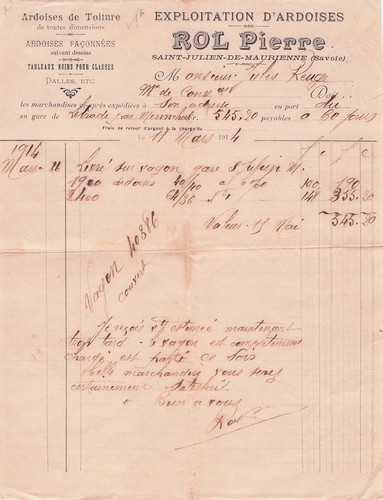 Ardoises de Toiture
de toutes dimensions
ARDOISES FAÇONNÉES
suivant dessins
TABLEAUX NOIRS POUR CLASSES
DALLES, ETC.
EXPLOITATION D'ARDOISES
ROL Pierre
SAINT-JULIEN-DE-MAURIENNE (Savoie)
Monsieur Jules
Md de
Doit
les marchandises ci-après expédiées à Son adresse en port dû
en gare de par 545.20 payables à 60 jours
Frais de retour d'argent à la charge
Le 11 Mars 1914
1914
Mars 11 Livré sur vagon gare St Julien M.
1900 ardoises 100 190
2400 148 355.20
Valeur 15 Mai 545.20
Vagon 40386
couvert
Je reçois estimée maintenant
trop tard le vagon est complètement
chargé est parti ce soir
Belle marchandise vous serez
certainement satisfait
Bien à vous
Rol